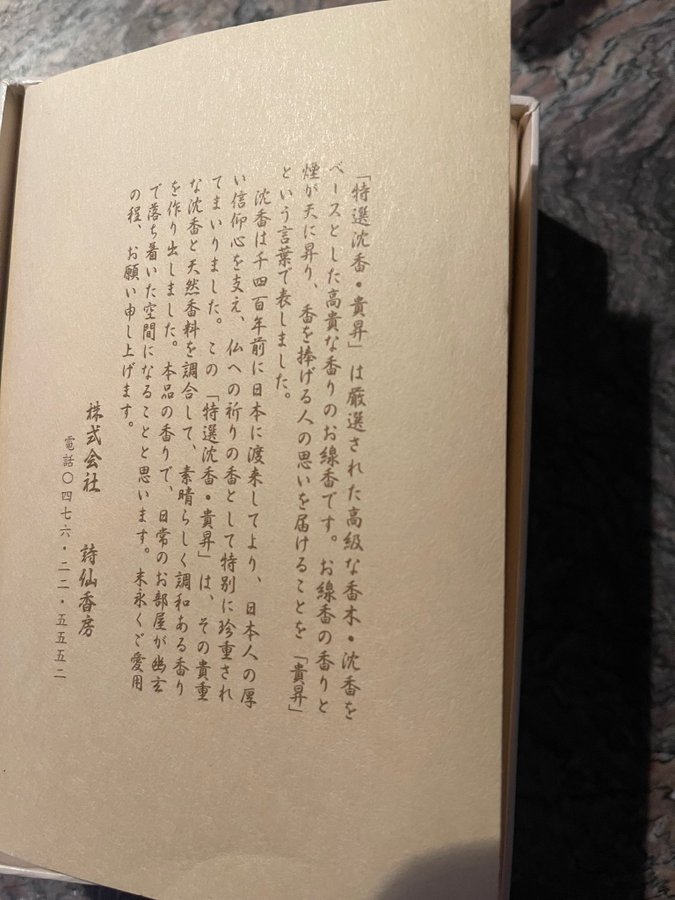 「特選沈香・貴昇」は厳選された高級な香木・沈香を
ベースとした高貴な香りのお線香です。お線香の香りと
煙が天に昇り、香を捧げる人の思いを届けることを「貴昇」
という言葉で表しました。
沈香は千四百年前に日本に渡来してより、日本人の厚
い信仰心を支え、仏への祈りの香として特別に珍重され
てまいりました。この「特選沈香・貴昇」は、その貴重
な沈香と天然香料を調合して、素晴らしく調和ある香り
を作り出しました。本品の香りで、日常のお部屋が幽玄
で落ち着いた空間になることと思います。末永くご愛用
の程、お願い申し上げます。
株式会社 詩仙香房
電話〇四七六・二二・五五五二